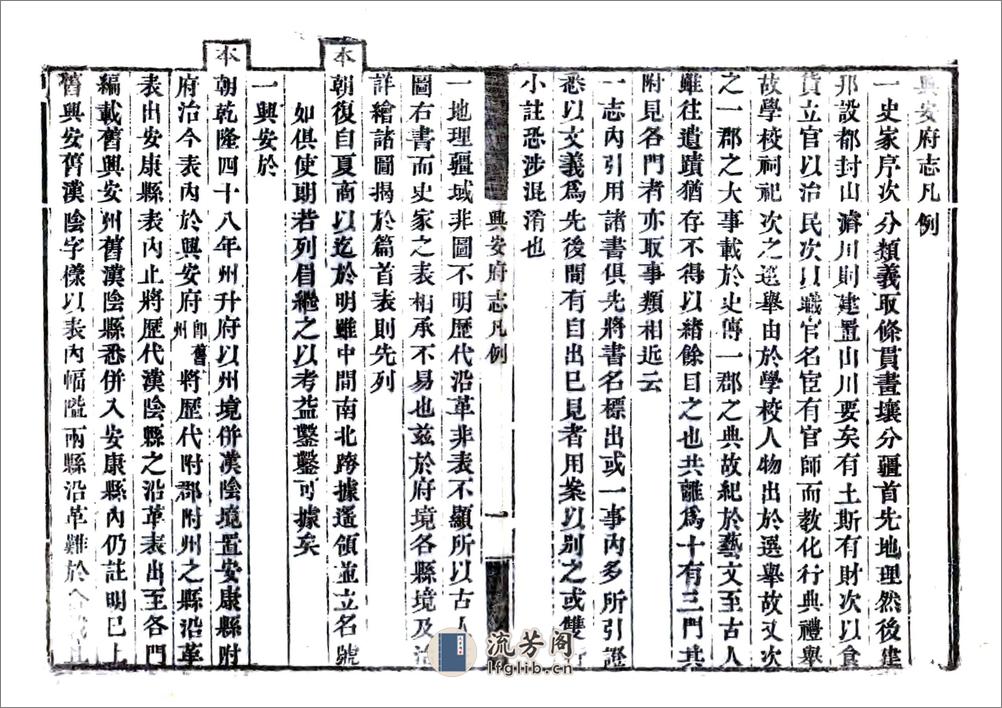 興安府志凡例
一史家序次分類義取條貫畫壤分疆首先地理然後建
邦設都封山濬川則建置山川要矣有土斯有財次以食
貨立官以治民次以職官名宦有官師而教化行典禮舉
故學校祠祀次之選舉由於學校人物出於選舉故又次
之一郡之大事載於史傳一郡之典故紀於藝文至古人
雖往遺蹟猶存不得以緒餘目之也共離為十有三門其
附見各門者亦取事類相近云
一志內引用諸書俱先將書名標出或一事內多所引證
悉以文義爲先後間有自出己見者用案以別之或雙行
小註恐涉混淆也
興安府志凡例
一
一地理疆域非圖不明歷代沿革非表不顯所以古人
圖右書而史家之表相承不易也茲於府境各縣境及治
詳繪諸圖揭於篇首表則先列
本
朝復自夏商以迄於明雖中間南北跨據遙領並立名號
如俱使瞭若列眉繼之以考益鑿鑿可據矣
一興安於
本
朝乾隆四十八年州升府以州境併漢陰境置安康縣附
府治今表內於興安府卽舊州將歷代附郡附州之縣沿革
表出安康縣表內止將歷代漢陰縣之沿革表出至各門
編載舊興安州舊漢陰縣悉併入安康縣內仍註明已上
舊興安舊漢陰字樣以表內幅隘兩縣沿革難於
流芳阁
lfglib.cn